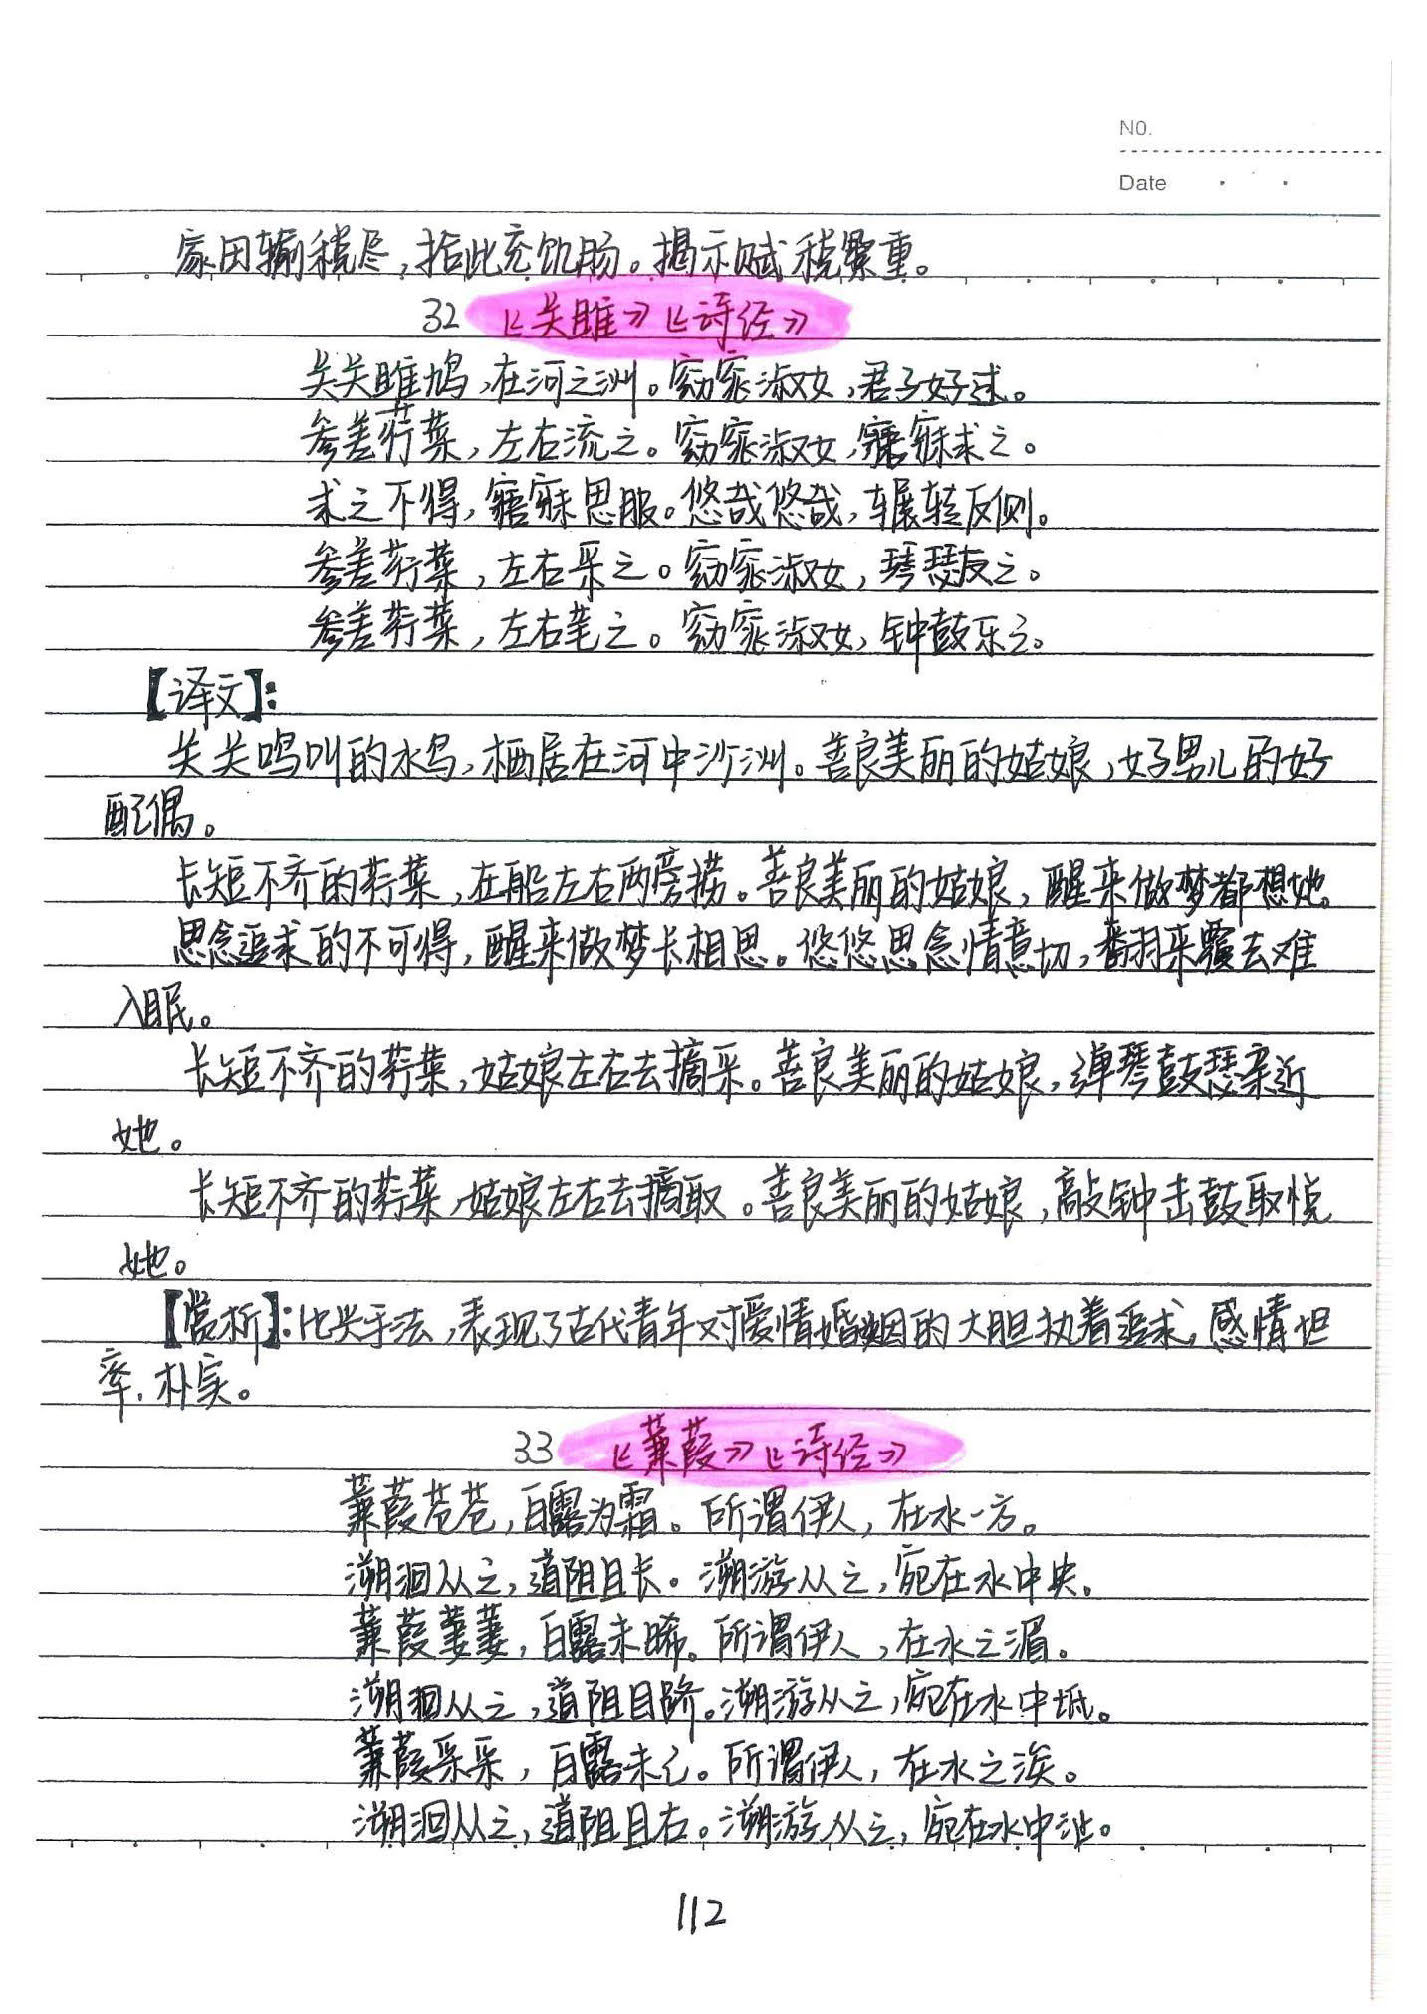 NO.
Date
家田输税尽,拾此充饥肠。揭示赋税繁重。
32 《关雎》《诗经》
关关雎鸠,在河之洲。窈窕淑女,君子好逑。
参差荇菜,左右流之。窈窕淑女,寤寐求之。
求之不得,寤寐思服。悠哉悠哉,辗转反侧。
参差荇菜,左右采之。窈窕淑女,琴瑟友之。
参差荇菜,左右芼之。窈窕淑女,钟鼓乐之。
【译文】:
关关鸣叫的水鸟,栖居在河中沙洲。善良美丽的姑娘,好男儿的好
配偶。
长短不齐的荇菜,在船左右两旁捞。善良美丽的姑娘,醒来做梦都想她。
思念追求的不可得,醒来做梦长相思。悠悠思念情意切,翻来覆去难
入眠。
长短不齐的荇菜,姑娘左右去摘采。善良美丽的姑娘,弹琴鼓瑟亲近
她。
长短不齐的荇菜,姑娘左右去摘取。善良美丽的姑娘,敲钟击鼓取悦
她。
【赏析】:比兴手法,表现了古代青年对爱情婚姻的大胆执着追求,感情坦
率,朴实。
33 《蒹葭》《诗经》
蒹葭苍苍,白露为霜。所谓伊人,在水一方。
溯洄从之,道阻且长。溯游从之,宛在水中央。
蒹葭萋萋,白露未晞。所谓伊人,在水之湄。
溯洄从之,道阻且跻。溯游从之,宛在水中坻。
蒹葭采采,白露未已。所谓伊人,在水之涘。
溯洄从之,道阻且右。溯游从之,宛在水中沚。
112